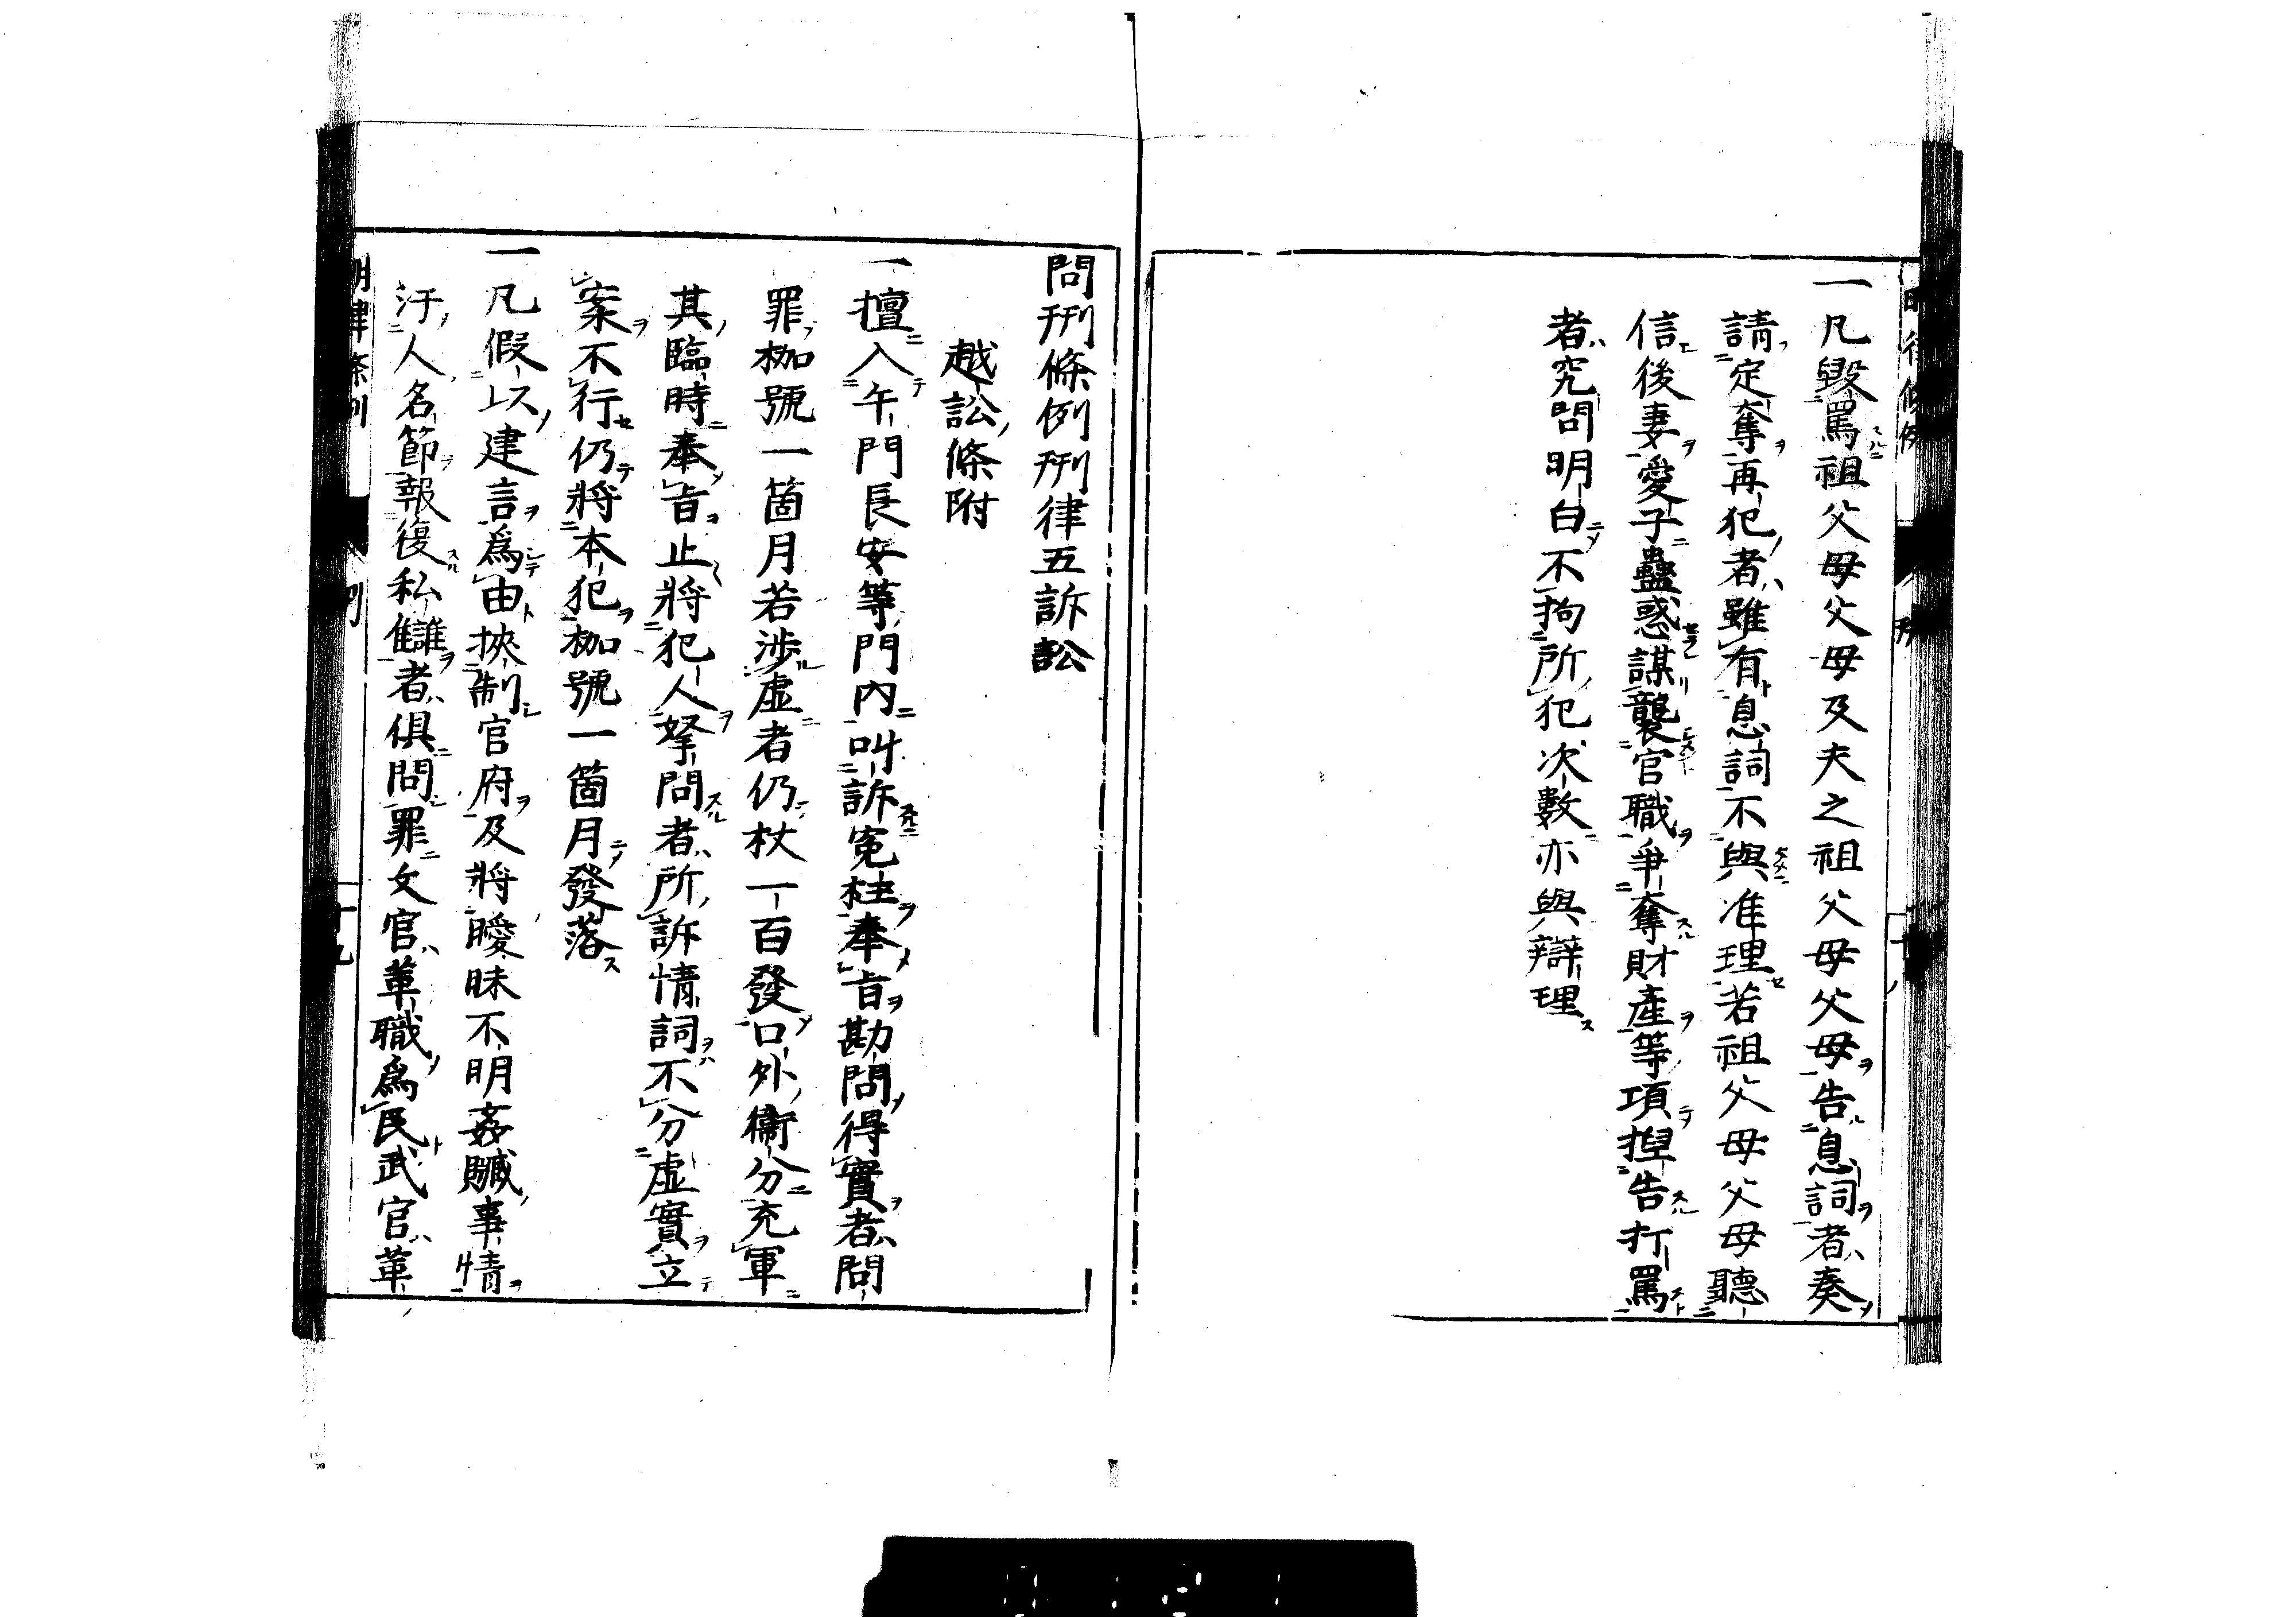 一凡毀罵祖父母父母及夫之祖父母父母告息詞者奏
請定奪再犯者雖有息詞不與准理若祖父母父母聽
信後妻愛子蠱惑謀襲官職爭奪財產等項揑告打罵
者究問明白不拘所犯次數亦與辯理
問刑條例刑律五訴訟
越訟條附
一擅入午門長安等門内叫訴寃枉奉旨勘問得實者問
罪枷號一箇月若涉虛者仍杖一百發口外衞分充軍
其臨時奉旨止將犯人拏問者所訴情詞不分虛實立
案不行仍將本犯枷號一箇月發落
一凡假以建言爲由挾制官府及將曖昧不明姦贓事情
汙人名節報復私讎者俱問罪文官革職爲民武官革